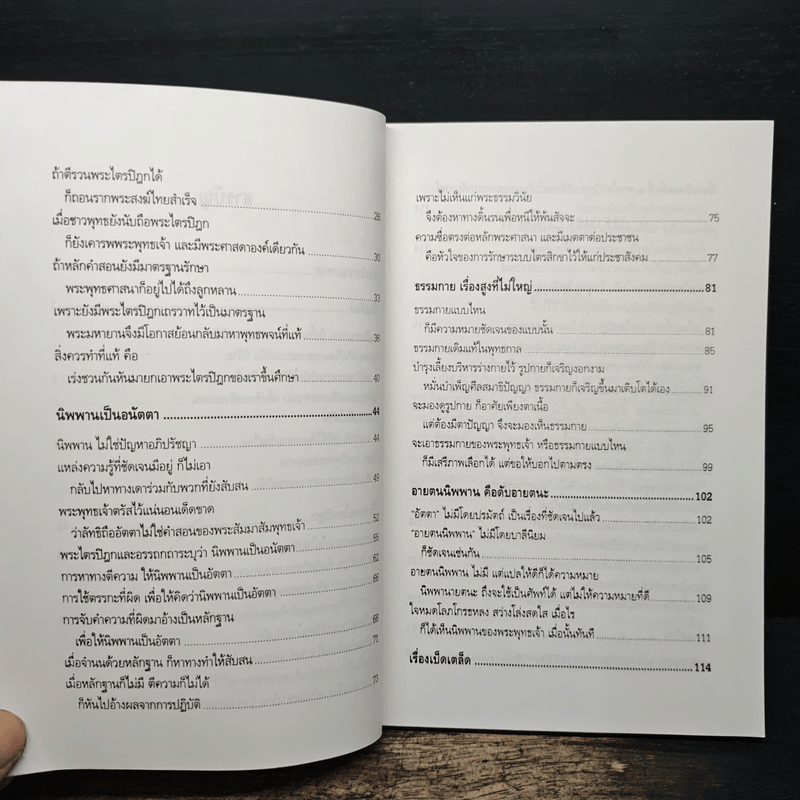 ถ้าตีรวนพระไตรปิฎกได้
ก็ถอนรากพระสงฆ์ไทยสำเร็จ 26
เมื่อชาวพุทธยังนับถือพระไตรปิฎก
ก็ยังเคารพพระพุทธเจ้า และมีพระศาสดาองค์เดียวกัน 30
ถ้าหลักคำสอนยังมีมาตรฐานรักษา
พระพุทธศาสนาก็อยู่ไปได้ถึงลูกหลาน 33
เพราะยังมีพระไตรปิฎกเถรวาทไว้เป็นมาตรฐาน
พระมหายานจึงมีโอกาสย้อนกลับมาหาพุทธพจน์ที่แท้ 36
สิ่งควรทำที่แท้ คือ
เร่งชวนกันหันมายกเอาพระไตรปิฎกของเราขึ้นศึกษา 40
นิพพานเป็นอนัตตา 44
นิพพาน ไม่ใช่ปัญหาอภิปรัชญา 44
แหล่งความรู้ที่ชัดเจนมีอยู่ ก็ไม่เอา
กลับไปหาทางเดาร่วมกับพวกที่ยังสับสน 49
พระพุทธเจ้าตรัสไว้แน่นอนเด็ดขาด
ว่าลัทธิถืออัตตาไม่ใช่คำสอนของพระสัมมาสัมพุทธเจ้า 52
พระไตรปิฎกและอรรถกถาระบุว่า นิพพานเป็นอนัตตา 55
การหาทางตีความ ให้นิพพานเป็นอัตตา 62
การใช้ตรรกะที่ผิด เพื่อให้คิดว่านิพพานเป็นอัตตา 66
การจับคำความที่ผิดมาอ้างเป็นหลักฐาน
เพื่อให้นิพพานเป็นอัตตา 68
เมื่อจำนนด้วยหลักฐาน ก็หาทางทำให้สับสน 71
เมื่อหลักฐานก็ไม่มี ตีความก็ไม่ได้
ก็หันไปอ้างผลจากการปฏิบัติ 73
เพราะไม่เห็นแก่พระธรรมวินัย
จึงต้องหาทางดิ้นรนเพื่อหนีให้พ้นสัจจะ 75
ความซื่อตรงต่อหลักพระศาสนา และมีเมตตาต่อประชาชน
คือหัวใจของการรักษาระบบไตรสิกขาไว้ให้แก่ประชาสังคม 77
ธรรมกาย เรื่องสูงที่ไม่ใหญ่ 81
ธรรมกายแบบไหน
ก็มีความหมายชัดเจนของแบบนั้น 81
ธรรมกายเดิมแท้ในพุทธกาล 85
บำรุงเลี้ยงบริหารร่างกายไว้ รูปกายก็เจริญงอกงาม
หมั่นบำเพ็ญศีลสมาธิปัญญา ธรรมกายก็เจริญขึ้นมาเติบโตได้เอง 91
จะมองดูรูปกาย ก็อาศัยเพียงตาเนื้อ
แต่ต้องมีตาปัญญา จึงจะมองเห็นธรรมกาย 95
จะเอาธรรมกายของพระพุทธเจ้า หรือธรรมกายแบบไหน
ก็มีเสรีภาพเลือกได้ แต่ขอให้บอกไปตามตรง 99
อายตนนิพพาน คือดับอายตนะ 102
"อัตตา" ไม่มีโดยปรมัตถ์ เป็นเรื่องที่ชัดเจนไปแล้ว 102
"อายตนนิพพาน" ไม่มีโดยบาลีนิยม
ก็ชัดเจนเช่นกัน 105
อายตนนิพพาน ไม่มี แต่แปลให้ดีก็ได้ความหมาย
นิพพานายตนะ ถึงจะใช้เป็นศัพท์ได้ แต่ไม่ให้ความหมายที่ดี 109
ใจหมดโลภโกรธหลง สว่างโล่งสดใส เมื่อไร
ก็ได้เห็นนิพพานของพระพุทธเจ้า เมื่อนั้นทันที 111
เรื่องเบ็ดเตล็ด 114